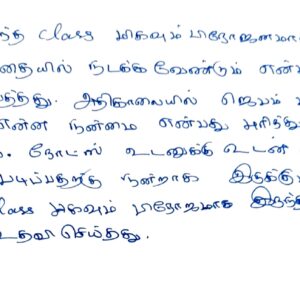 ந்த class மிகவும் பிரோஜனமா
தையில் நடக்க வேண்டும் என்
பத்தது. அதிகாலையில் ஜெபம்
என்ன நன்மை என்பது புரிந்து
நோட்ஸ் உடனுக்கு உடன்
படிப்பதற்கு நன்றாக இருக்கு
class மிகவும் பிரோஜமாக இருந்
உதவி செய்தது.